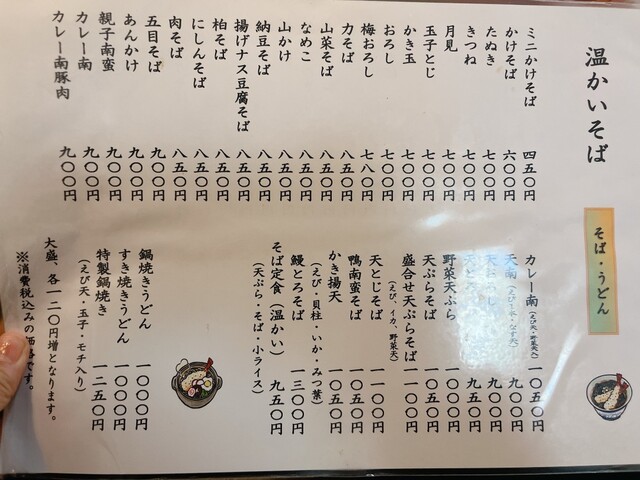 温かいそば
そば・うどん
ミニかけそば 四五〇円
かけそば 六〇〇円
たぬき 七〇〇円
きつね 七〇〇円
月見 七〇〇円
玉子とじ 七〇〇円
かき玉 七〇〇円
おろし 七〇〇円
梅おろし 七八〇円
力そば 八五〇円
山菜そば 八五〇円
なめこ 八五〇円
山かけ 八五〇円
納豆そば 八五〇円
揚げナス豆腐そば 八五〇円
柏そば 八五〇円
にしんそば 八五〇円
肉そば 八五〇円
五目そば 九〇〇円
あんかけ 九〇〇円
親子南蛮 九〇〇円
カレー南 九〇〇円
カレー南豚肉 九〇〇円
カレー南(えび天・野菜天入) 一〇五〇円
天南 九〇〇円
九〇〇円
九五〇円
野菜天ぷら
天ぷらそば
盛合せ天ぷらそば 一一〇〇円
(えび、イカ、野菜天)
天とじそば 一一〇〇円
鴨南蛮そば 一〇五〇円
かき揚天 一〇五〇円
(えび・貝柱・いか・みつ葉)
鰻とろそば 一三〇〇円
そば定食(温かい) 九五〇円
(天ぷら・そば・小ライス)
鍋焼きうどん 一〇〇〇円
すき焼きうどん 一〇〇〇円
特製鍋焼き 一二五〇円
(えび天・玉子・モチ入り)
大盛、各一二〇円増となります。
※消費税込みの価格です。